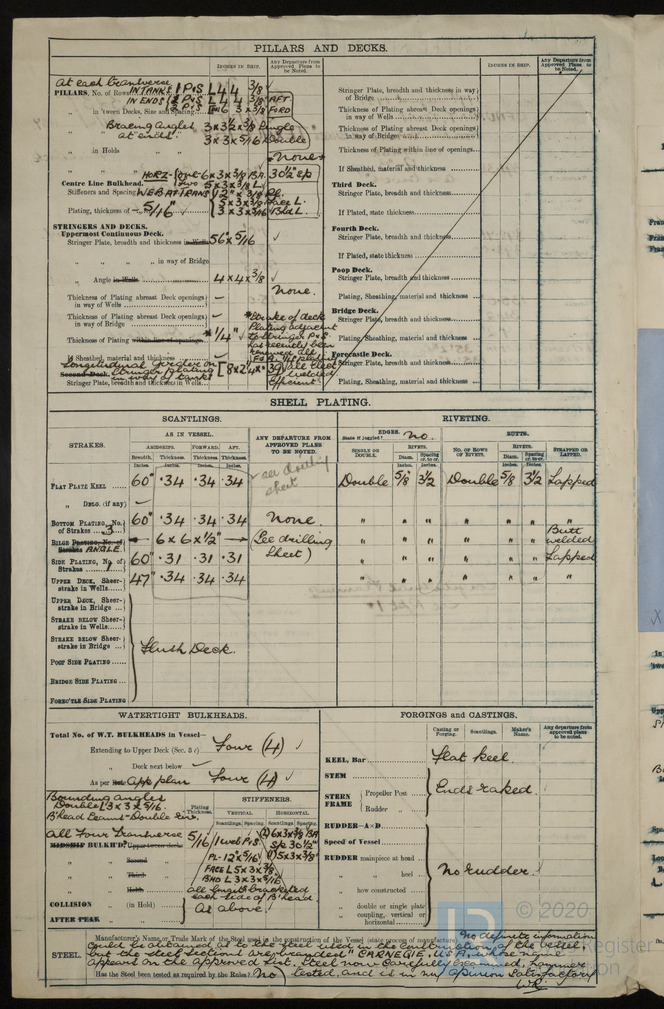 PILLARS AND DECKS.
INCHES IN SHIP.
Any Departure from Approved Plans to be Noted.
At each transverse
PILLARS, No. of Rows IN TANKS 1 P+S L 4 4 3/8
IN ENDS
AFT
FORD
" in 'tween Decks, Size and Spacing
Bracing Angles 3 x 3½ x 3/8 Single
at ends 3 x 3 x 5/16 Double
" in Holds
None
6 x 3 x 3/8 BA 30½" sp
Centre Line Bulkhead.
Stiffeners and Spacing WEB AT TRANS 12" x 3/8 Pl.
5 x 3 x 3/8 Face L.
Plating, thickness of 5/16" 3 x 3 x 5/16 Bhd L.
STRINGERS AND DECKS.
Uppermost Continuous Deck.
Stringer Plate, breadth and thickness in Wells 56" x 5/16
" " " in way of Bridge
" Angle in Wells 4 x 4 x 3/8
None.
Thickness of Plating abreast Deck openings in way of Wells
Thickness of Plating abreast Deck openings in way of Bridge
Thickness of Plating within line of openings * 1/4"
*Strake of deck
Plating adjacent
to stringer P+S
has recently been
If Sheathed, material and thickness
Longitudinal girders on
Second Deck. Stringer plating
in way of tanks
Stringer Plate, breadth and thickness in Wells
welded
efficient
INCHES IN SHIP.
Any Departure from Approved Plans to be Noted.
Stringer Plate, breadth and thickness in way of Bridge
Thickness of Plating abreast Deck openings in way of Wells
Thickness of Plating abreast Deck openings in way of Bridge
Thickness of Plating within line of openings
If Sheathed, material and thickness
Third Deck.
Stringer Plate, breadth and thickness
If Plated, state thickness
Fourth Deck.
Stringer Plate, breadth and thickness
If Plated, state thickness
Poop Deck.
Stringer Plate, breadth and thickness
Plating, Sheathing, material and thickness
Bridge Deck.
Stringer Plate, breadth and thickness
Plating, Sheathing, material and thickness
Forecastle Deck.
Stringer Plate, breadth and thickness
Plating, Sheathing, material and thickness
SHELL PLATING.
SCANTLINGS.
RIVETING.
STRAKES.
AS IN VESSEL.
AMIDSHIPS. FORWARD. AFT.
Breadth. Thickness. Thickness. Thickness.
ANY DEPARTURE FROM APPROVED PLANS TO BE NOTED.
EDGES. State if joggled? No.
SINGLE OR DOUBLE.
RIVETS.
Diam. Spacing cr. to cr.
BUTTS.
NO. OF ROWS OF RIVETS.
RIVETS.
Diam. Spacing cr. to cr.
STRAPPED OR LAPPED.
Inches. Inches. Inches. Inches.
see drilling
sheet
FLAT PLATE KEEL 60" .34 .34 .34 Double 5/8 3½ Double 5/8 3½ Lapped
" DBLG. (if any)
BOTTOM PLATING, No. of Strakes 3 60" .34 .34 .34 None. " " " " " " "
BILGE PLATING, No. of Strakes ANGLE 6 x 6 x ½" (See drilling Sheet) Butt welded
SIDE PLATING, No. of Strakes 1 60" .31 .31 .31 " " " " " " Lapped
UPPER DECK, Sheerstrake in Wells 47" .34 .34 .34 " " " " " " "
UPPER DECK, Sheerstrake in Bridge
STRAKE BELOW Sheerstrake in Wells
STRAKE BELOW Sheerstrake in Bridge
Flush Deck.
POOP SIDE PLATING
BRIDGE SIDE PLATING
FORECTLE SIDE PLATING
WATERTIGHT BULKHEADS.
Total No. of W.T. BULKHEADS in Vessel—
Extending to Upper Deck (Sec. 3 c) Four (4)
" Deck next below
As per App plan Four (4)
Bounding angles
Double L 3 x 3 x 5/16.
B'head Seams-Double riv.
Plating Thickness.
STIFFENERS.
VERTICAL. HORIZONTAL.
Scantlings. Spacing. Scantlings. Spacing.
All Four Transverse 5/16
MIDSHIP BULKH'D, Upper 'tween decks
(2) 6x3x3/8 BA
Sp 30½"
(1) 5x3x3/8"
PL-12"x5/16
FACE L 5x3x3/8
BHD L 3x3x5/16
Second
Third
Holds
COLLISION (in Hold)
AFTER PEAK
each side of B'head
As above
FORGINGS and CASTINGS.
Casting or Forging. Scantlings. Maker's Name. Any departure from approved plans to be noted.
KEEL, Bar Flat keel.
STEM
STERN FRAME Propeller Post
Rudder "
Ends raked.
RUDDER—A×D
Speed of Vessel
RUDDER mainpiece at head
" " heel
No rudder.
" how constructed
" double or single plate
coupling, vertical or horizontal
© 2020
STEEL.
Manufacturer's Name, or Trade Mark of the Steel used in the construction of the Vessel (state process of manufacture) No definite information
could be obtained as to the steel used in the construction of the vessel
but the steel sections are branded "CARNEGIE, U.S.A. whose name
appears on the approved list. Steel now carefully examined, hammer
Has the Steel been tested as required by the Rules? No tested, and is in my opinion satisfactory
WR